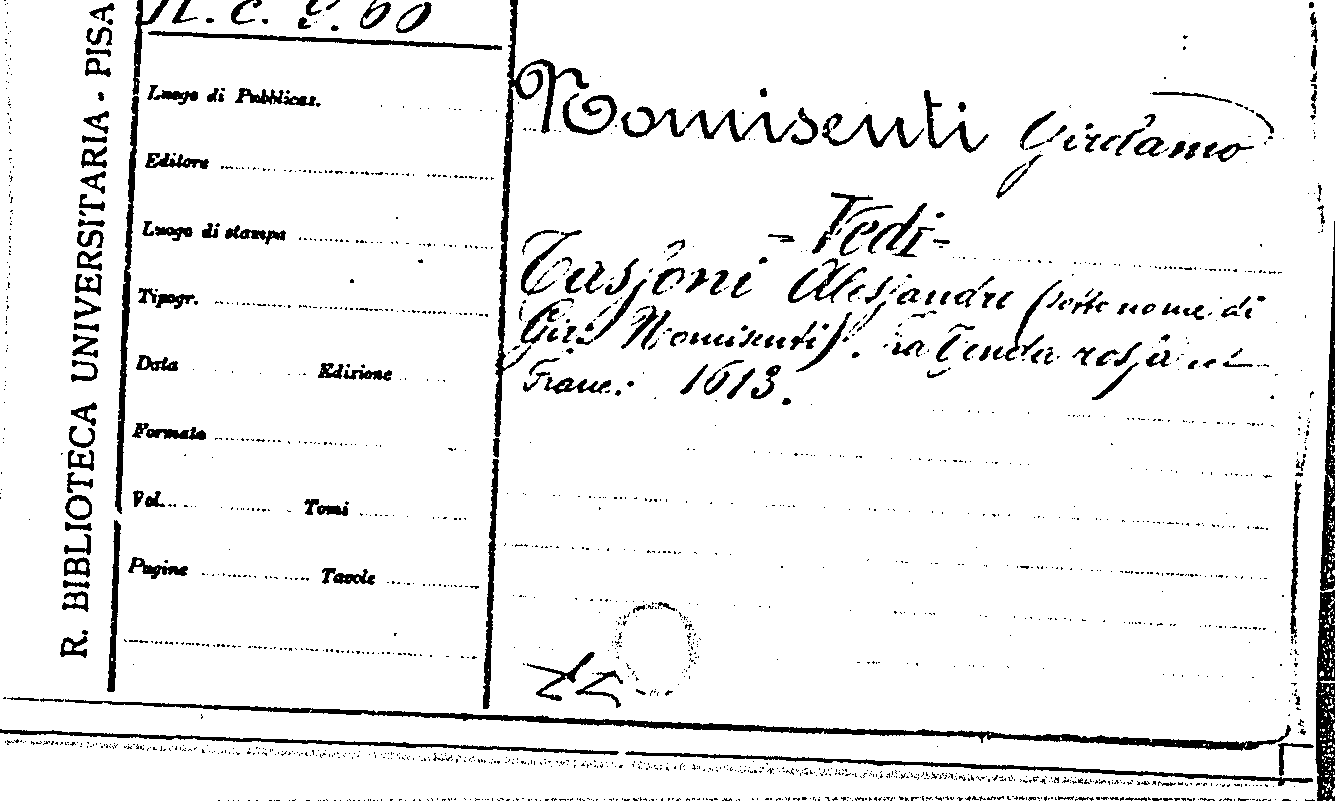 R. BIBLIOTECA UNIVERSITARIA - PISA
Luogo di Pubblicaz.
Editore
Luogo di stampa
Tipogr.
Data Edizione
Formato
Vol. Tomi
Pagine Tavole
Nomisenti Girolamo
- Vedi -
Tassoni Alessandro (sotto nome di
Gir. Nomisenti). La Tenda rossa
Franc: 1613.